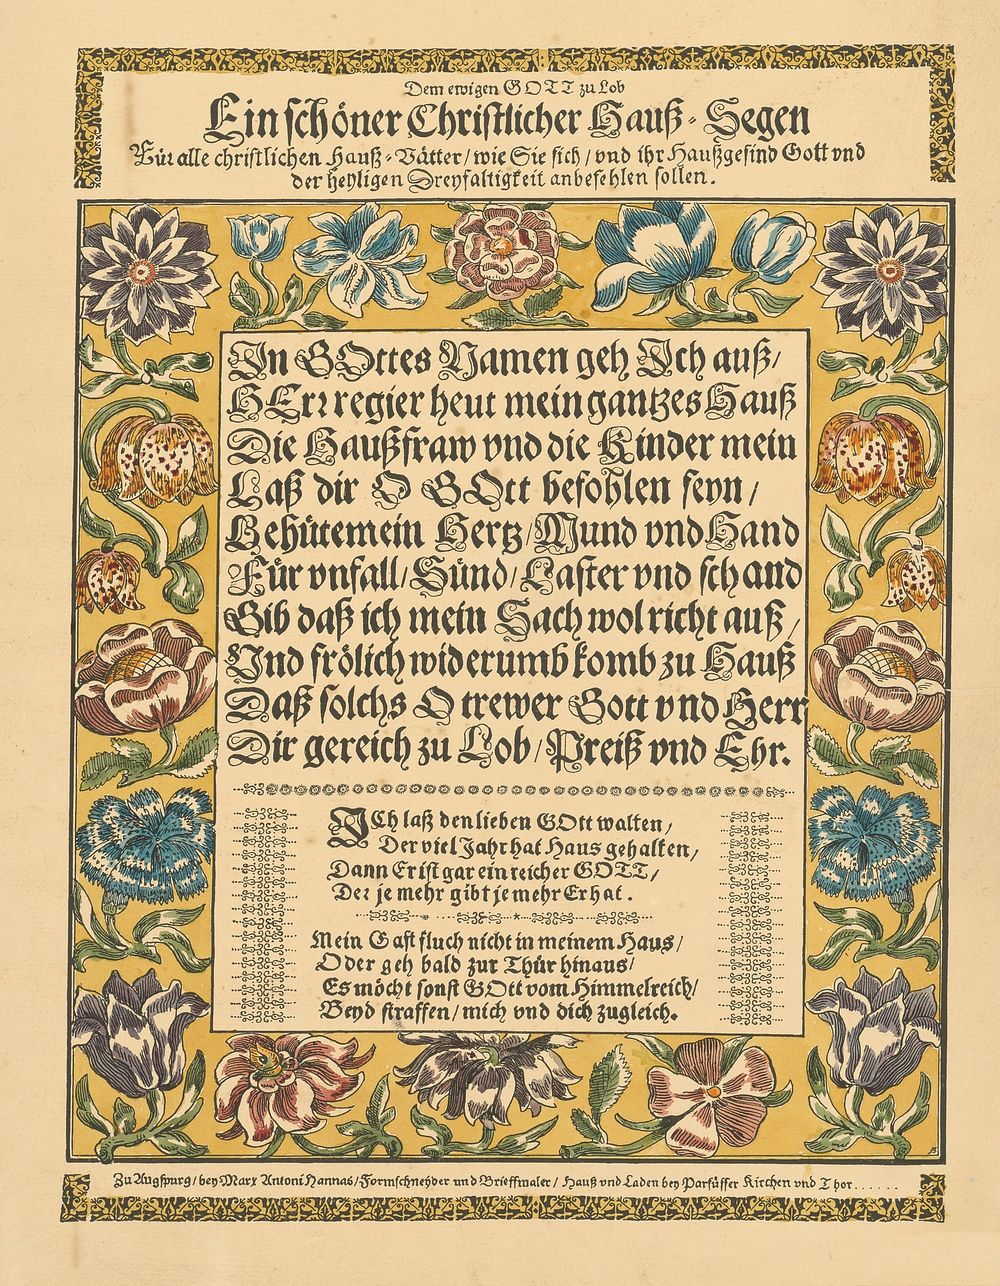 Dem ewigen GOTT zu Lob
Ein schöner Christlicher Hauß-Segen
Für alle christlichen Hauß-Vätter/ wie Sie sich/ vnd ihr Haußgesind Gott vnd
der heyligen Dreyfaltigkeit anbefehlen sollen.
In GOttes Namen geh Ich auß/
HErr regier heut mein gantzes Hauß
Die Haußfraw vnd die Kinder mein
Laß dir O GOtt befohlen seyn/
Behüte mein Hertz/ Mund vnd Hand
Für vnfall/ Sünd/ Laster vnd schand
Gib daß ich mein Sach wol richt auß/
Vnd frölich widerumb komb zu Hauß
Daß solchs O trewer Gott vnd Herr
Dir gereich zu Lob/ Preiß vnd Ehr.
ICh laß den lieben GOtt walten/
Der viel Jahr hat Haus gehalten/
Dann Er ist gar ein reicher GOTT/
Der je mehr gibt je mehr Er hat.
Mein Gast fluch nicht in meinem Haus/
Oder geh bald zur Thür hinaus/
Es möcht sonst GOtt vom Himmelreich/
Beyd straffen/ mich vnd dich zugleich.
Zu Augspurg/ bey Marx Antoni Hannas/ Formschneyder und Brieffmaler/ Hauß vnd Laden bey Parfüsser Kirchen vnd Thor......